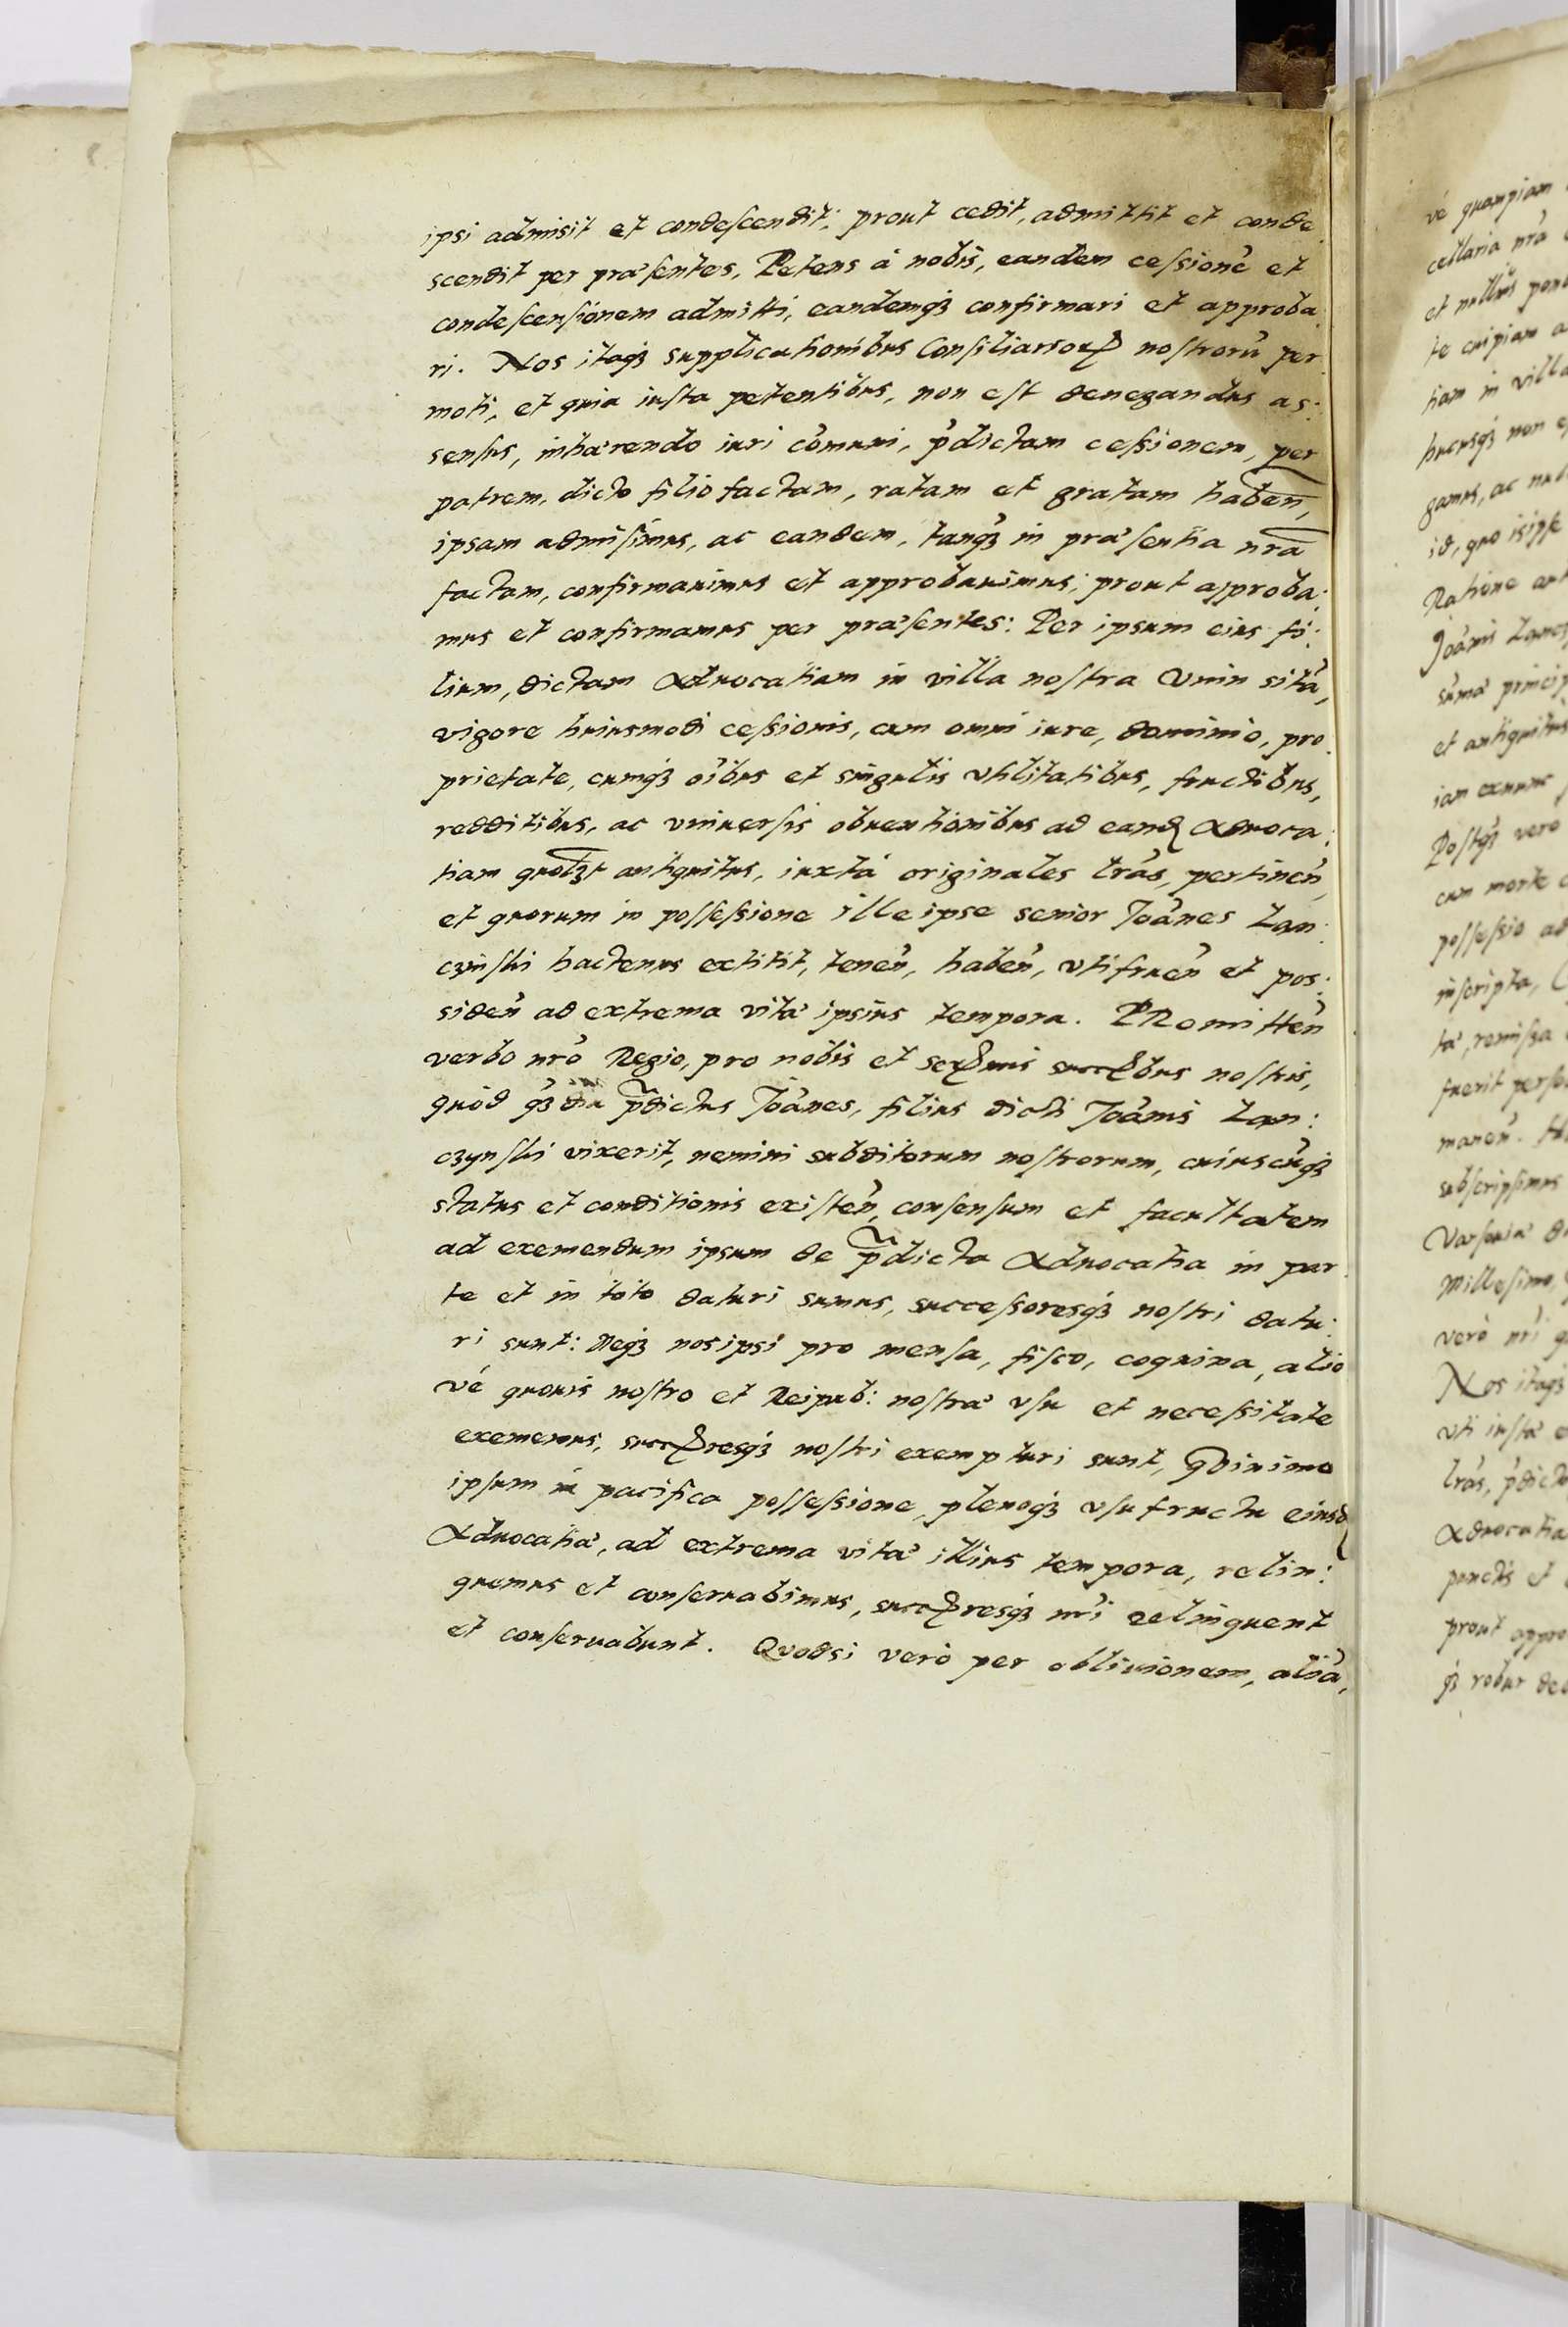 ipsi admisit et condescendit: prout cedit, admittit et conde
scendit per præsentes, Petens à nobis, eandem cessionē et
condescensionem admitti, eandemq₃ confirmari et approba
ri. Nos itaq₃ supplicationibus Consiliarioꝝ nostrorū per
moti, et quia iusta petentibus, non est denegandus as:
sensus, inhærendo iuri cōmuni, p̄dictam cessionem, per
patrem, dicto filio factam, ratam et gratam haben̄,
ipsam admisimus, ac eandem, tanq₃ in præsentia nrā
factam, confirmauimus et approbauimus; prout approba:
mus et confirmamus per præsentes: Per ipsum eius fi:
lium, dictam Aduocatiam in villa nostra Vnin sitā,
vigore huiusmodi cessionis, cum omni iure, dominio, pro
prietate, cumq₃ oībus et singulis vtilitatibus, fructibus,
redditibus, ac vniuersis obuentionibus ad eand Aduoca:
tiam quol₃t antiquitus, iuxta originales lrās, pertinen̄,
et quorum in possessione ille ipse senior Joānes Lan:
czinski hactenus extitit, tenen̄, haben̄, vtifruen̄ et pos:
siden̄ ad extrema vitæ ipsius tempora. PRomitten̄
verbo nrō Regio, pro nobis et serenmis succribus nostris,
quòd q₃diu p̄dictus Joānes, filius dicti Joānis Lan:
czynski vixerit, nemini subditorum nostrorum, cuiuscūq₃
status et conditionis existen̄, consensum et facultatem
ad exemendum ipsum de p̄dicta Aduocatia in par
te et in toto daturi sumus, successoresq₃ nostri datu:
ri sunt: Neq₃ nosipsi pro mensa, fisco, coquina, alio
vé quouis nostro et Reipub: nostræ vsu et necessitate
exememus, succresq₃ nostri exempturi sunt, qinimo
ipsum in pacifica possessione, plenoq₃ vsufructu eiusd
Aduocatiæ, ad extrema vitæ illius tempora, relin:
quemus et conseruabimus, succresq₃ nrī relinquent
et conseruabunt. Quodsi verò per obliuionem, aliā,
vé quampiam
cellaria nrā
et nullius
te cuipiam a
tiam in villa
hucusq₃ non e
gamus, ac
id, quo
Ratione
Joānis
sūma princip
et antiquitus
iam exnunc
Postq₃ vero
cum morte
possessio ad
inscripta,
tæ, remissa
fuerit
manen̄.
subscripsimus
Varsauiæ
Millesimo,
verò nrī
Nos itaq₃
vti iusta
lrās, p̄dict
Aduocatia
punctis et
prout appro
q₃ robur